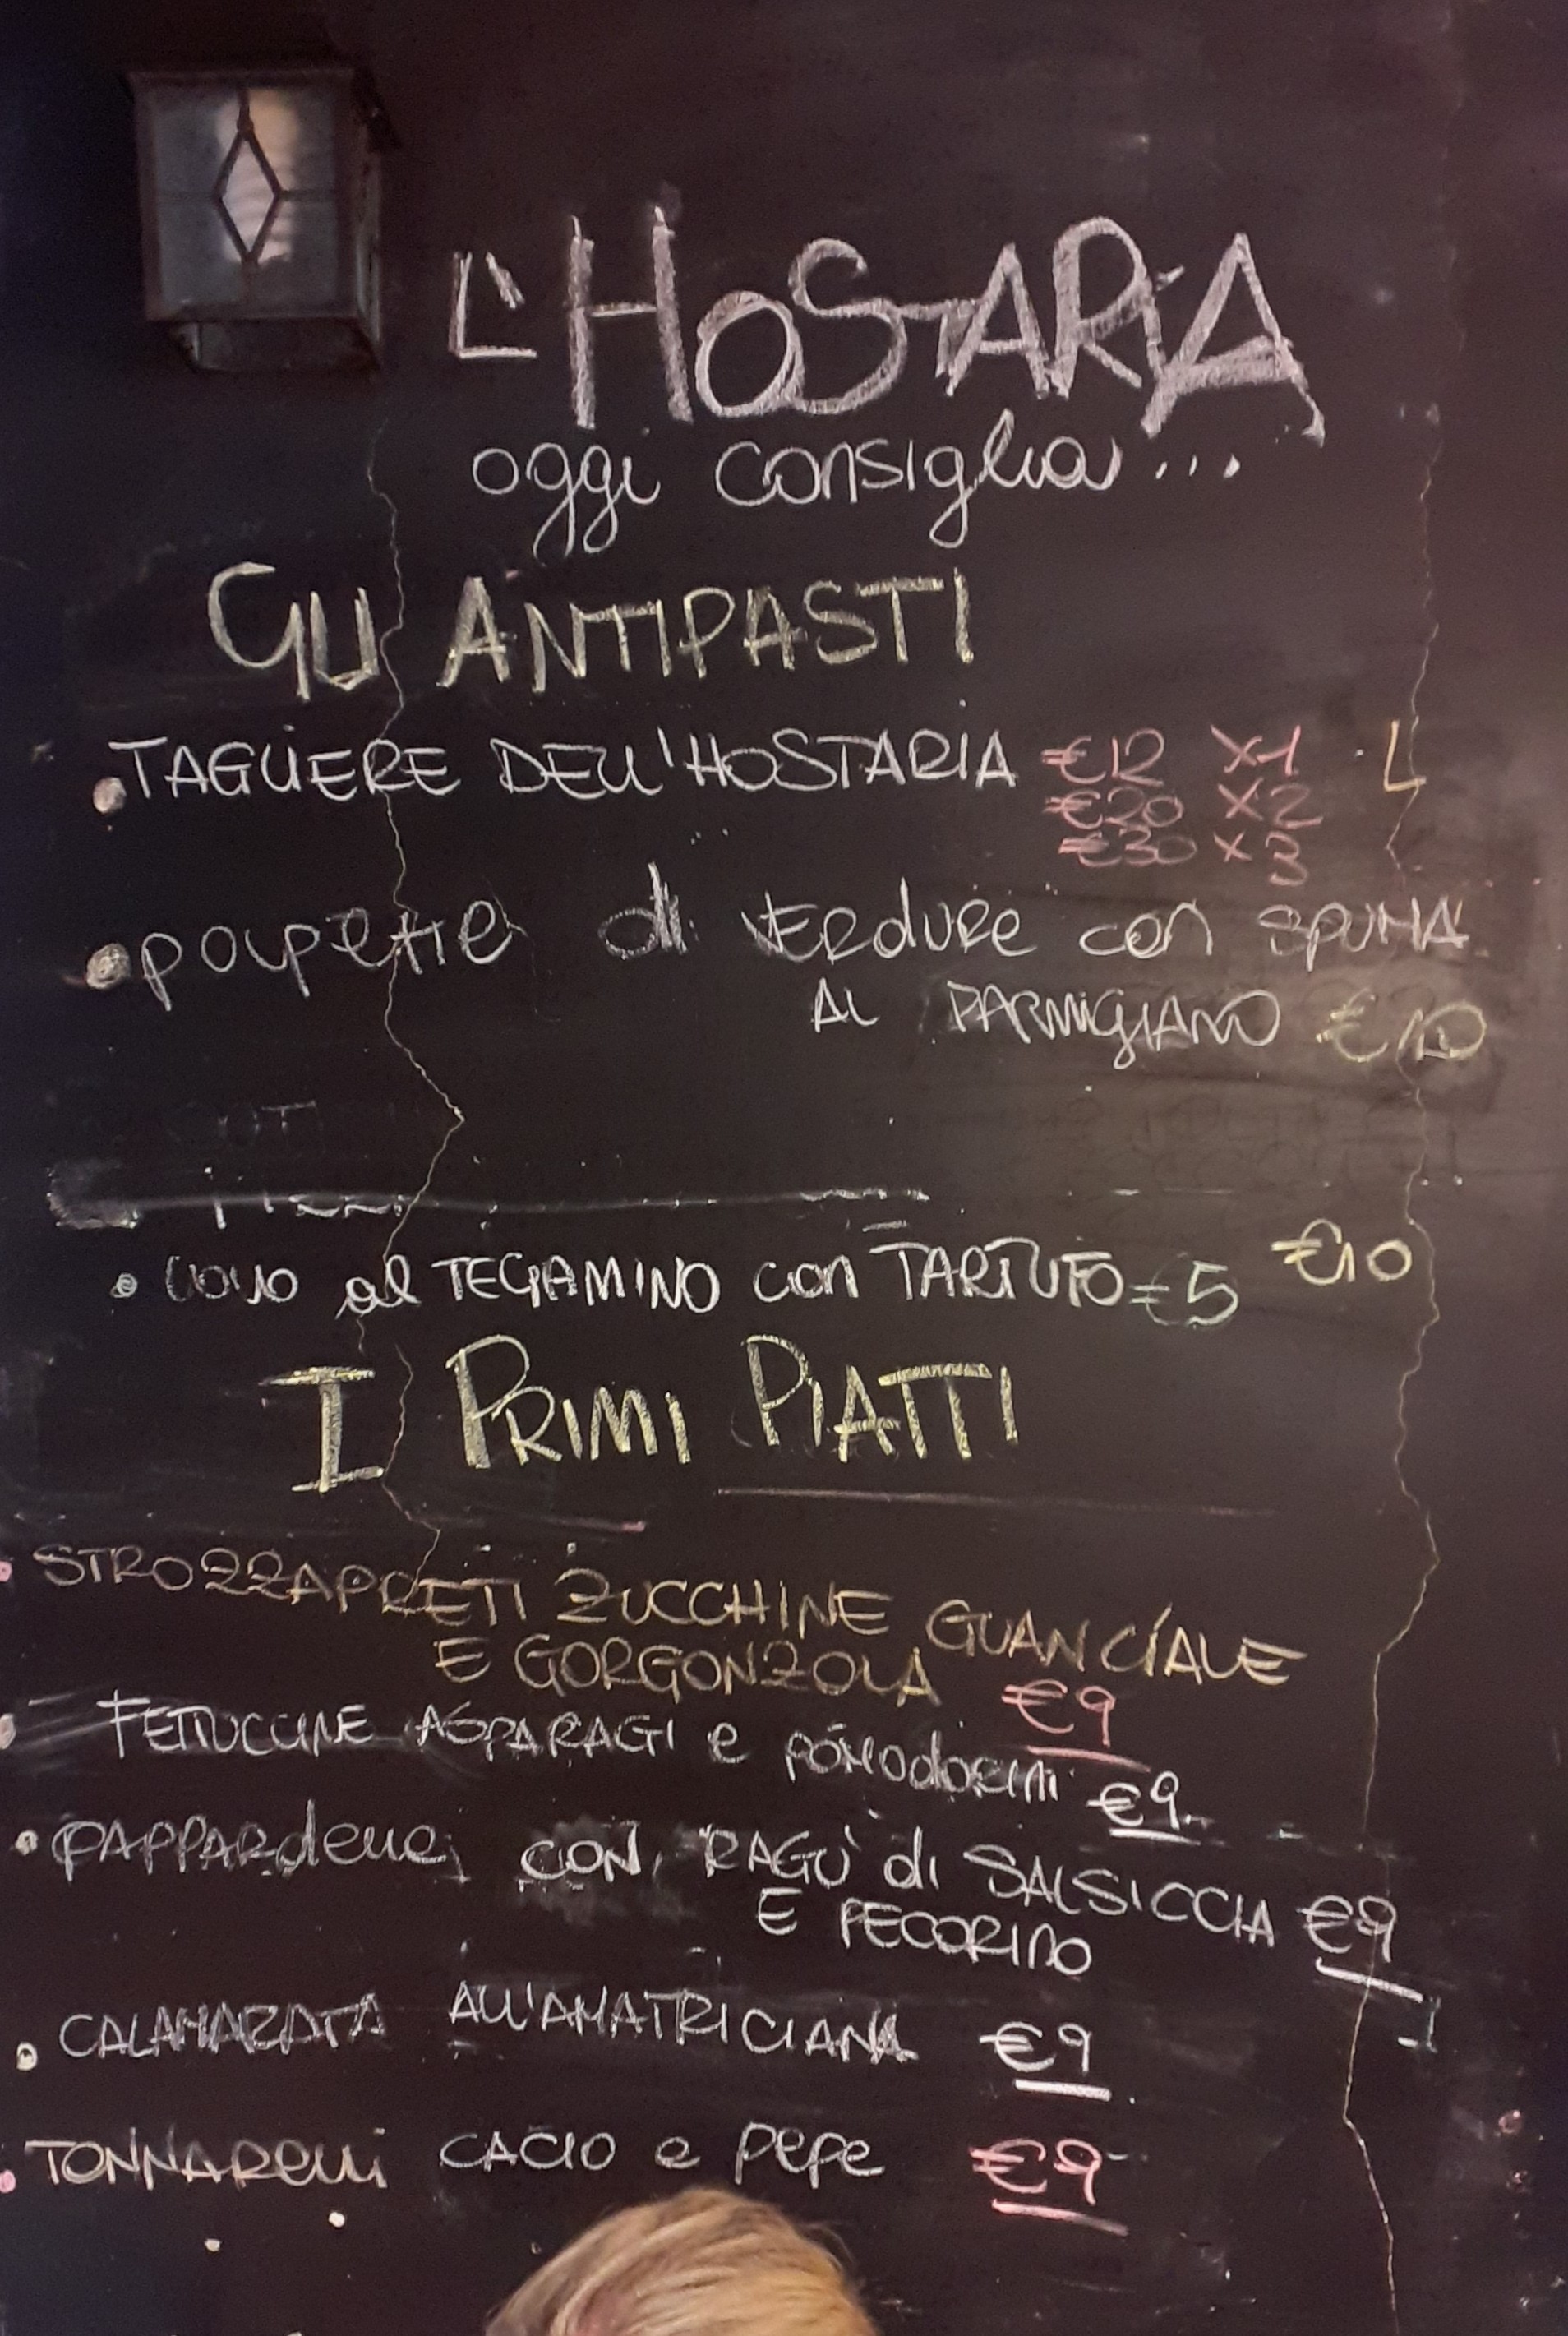 L'HOSTARIA
oggi consiglia...
GLI ANTIPASTI
• TAGLIERE DELL'HOSTARIA €12 X1
€20 X2
€30 X3
• polpette di verdure con SPUMA
AL PARMIGIANO €10
• uovo al TEGAMINO con TARTUFO €5 €10
I PRIMI PIATTI
• STROZZAPRETI ZUCCHINE GUANCIALE
E GORGONZOLA €9
• FETTUCCINE ASPARAGI e pomodorini €9
• PAPPARdelle CON RAGÙ di SALSICCIA €9
E PECORINO
• CALAMARATA ALL'AMATRICIANA €9
• TONNARELLI CACIO e pepe €9